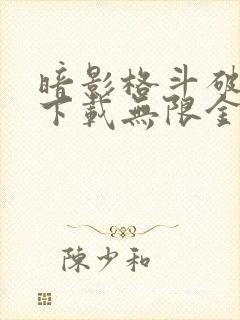 暗影格斗破
下載無限金
陳少和